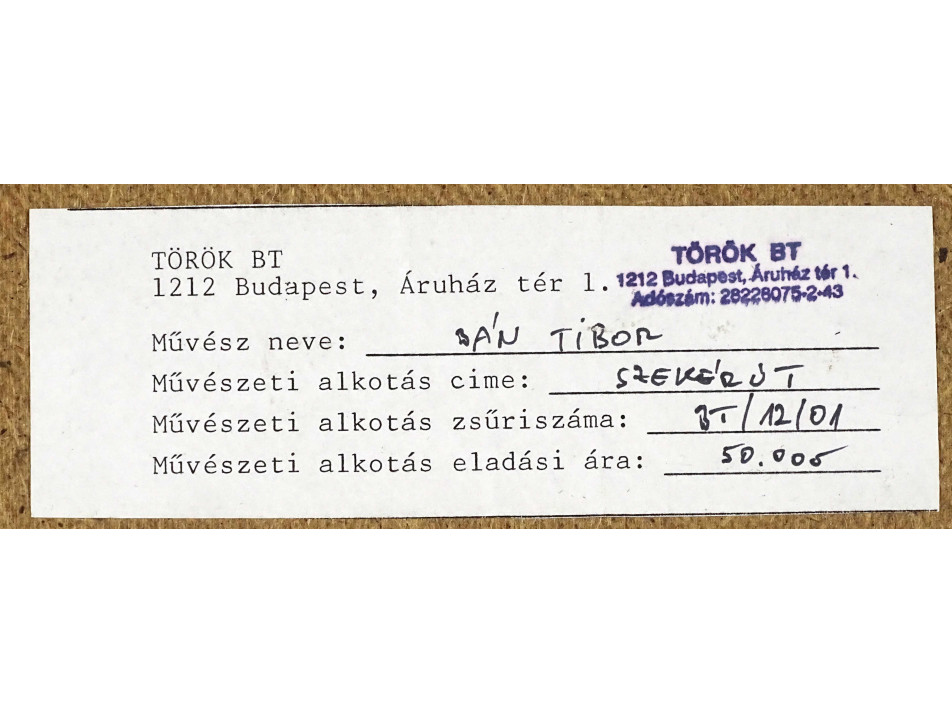 TÖRÖK BT
1212 Budapest, Áruház tér 1.
TÖRÖK BT
1212 Budapest, Áruház tér 1.
Adószám: 28228075-2-43
Művész neve: BÁN TIBOR
Művészeti alkotás cime: SZEKÉRÚT
Művészeti alkotás zsűriszáma: BT/12/01
Művészeti alkotás eladási ára: 50.000